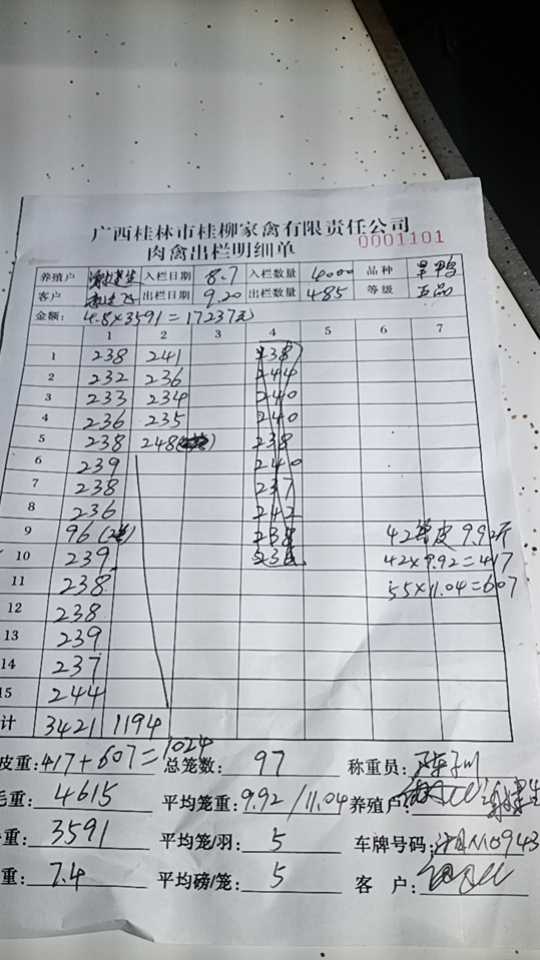 广西桂林市桂柳家禽有限责任公司
肉禽出栏明细单
0001101
养殖户 入栏日期 8.7 入栏数量 4000 品种
客户 出栏日期 9.20 出栏数量 485 等级
金额: 4.8×3591=17237元
1 2 3 4 5 6 7
1 238 241 238
2 232 236 244
3 233 234 240
4 236 235 240
5 238 248 238
6 239 240
7 238 237
8 236 242
9 96 238 42 皮 9.92斤
10 239 42×9.92=417
11 238 55×11.04=607
12 238
13 239
14 237
15 244
计 3421 1194
皮重: 417+607=1024 总笼数: 97 称重员:
毛重: 4615 平均笼重: 9.92/11.04 养殖户:
重: 3591 平均笼/羽: 5 车牌号码:
重: 7.4 平均磅/笼: 5 客 户: